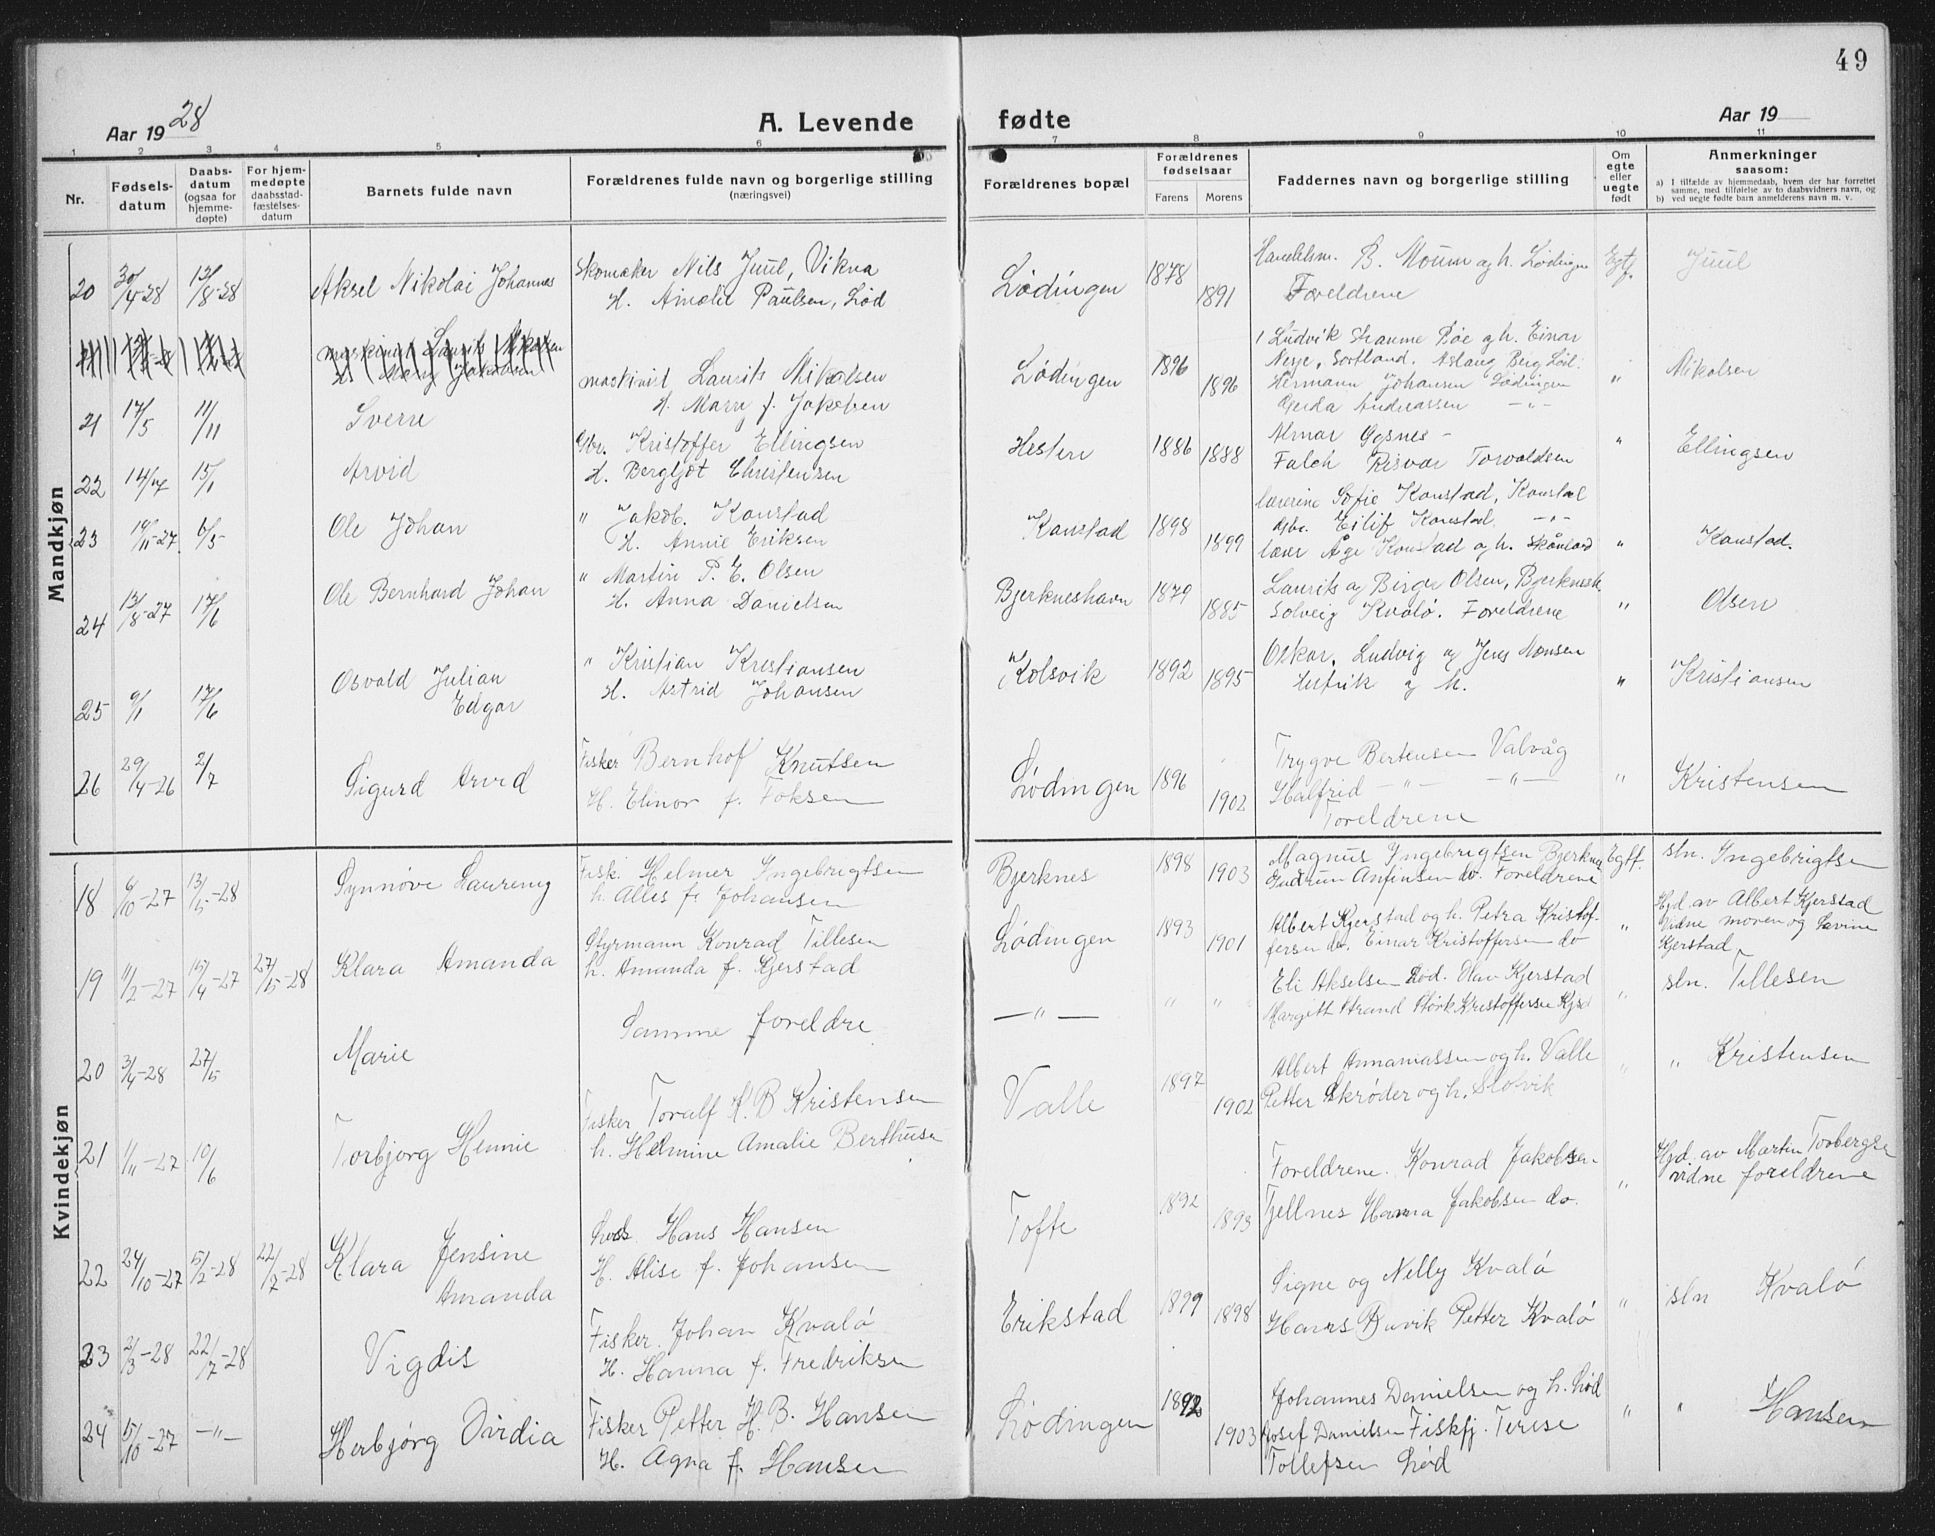 49
Aar 1928
A. Levende
fødte
Aar 19
1 2 3 4 5 6 7 8 9 10 11
Nr.
Fødselsdatum
Daabsdatum (ogsaa for hjemmedøpte)
For hjemmedøpte daabsstadfæstelsesdatum
Barnets fulde navn
Forældrenes fulde navn og borgerlige stilling
(næringsvei)
Forældrenes bopæl
Forældrenes fødselsaar
Farens Morens
Faddernes navn og borgerlige stilling
Om egte eller uegte født
Anmerkninger
saasom:
a) I tilfælde av hjemmedaab, hvem der har forrettet
samme, med tilføielse av to daabsvidners navn, og
b) ved uegte fødte barn anmelderens navn m. v.
Mandkjøn
20 30/4-28 12/8-28 Aksel Nikolai Johannes
Skomaker Nils Juul, Vikna
H. Amalie Paulsen, Lød
Lødingen 1878 1891
Handelsm. B. Moum og h. Lødingen
Foreldrene
Egtf. Juul
21 17/5 11/11 Sverre
maskinist Laurits Mikalsen
H. Marry f. Jakobsen
Lødingen 1896 1896
Ludvik Straume Bøe og h. Einar
Nesje, Sortland. Aslaug Berg Lød.
Hermann Johansen Lødingen
Gerda Andreassen —"—
" Mikalsen
22 14/4 15/1 Arvid
Gbr. Kristoffer Ellingsen
H. Bergljot Christensen
Hestern 1886 1888
Almar Gysnes -
Falch Risvær Torvaldsen
" Ellingsen
23 14/11-27 6/5 Ole Johan
" Jakob. Kanstad
H. Annie Eriksen
Kanstad 1898 1899
lærerine Sofie Kanstad, Kanstad
Gbr. Eilif Kanstad —"—
lærer Åge Kanstad og h. Skånland
" Kanstad.
24 13/8-27 17/6 Ole Bernhard Johan
" Martin P. E. Olsen
H. Anna Danielsen
Bjerkneshavn 1879 1885
Laurits og Birger Olsen, Bjerknesh.
Solveig Kvalø. Foreldrene
" Olsen
25 9/1 17/6 Osvald Julian
Edgar
" Kristian Kristiansen
H. Astrid Johansen
Kolsvik 1892 1895
Oskar, Ludvig og Jens Monsen
" Kristiansen
26 29/4-26 2/7 Sigurd Arvid
Fisker Bernhof Knutsen
H. Elinor f. Foksen
Lødingen 1896 1902
Trygve Bertensen Valvåg
Halfrid —"— —"—
Foreldrene
" Kristensen
Kvindekjøn
18 6/10-27 13/5-28 Synnøve Laureng
Fisk. Helmer Ingebrigtsen
h. Alles f. Johansen
Bjerknes 1898 1903
Magnus Ingebrigtsen Bjerknes
Gudrun Anfinsen do. Foreldrene
Egtf. sln. Ingebrigtsen
19 11/2-27 15/4-27 27/5-28 Klara Amanda
Styrmann Konrad Tillesen
h. Amanda f. Kjerstad
Lødingen 1893 1901
Albert Kjerstad og h. Petra Kristof-
fersen do. Einar Kristoffersen do
" Hjd av Albert Kjerstad
Vidne moren og Lavine
Kjerstad
20 3/4-28 27/5 Marie
Samme foreldre
—"— " "
Eli Akselsen Lød. Olav Kjerstad
Margith Strand Størk Kristoffersen Kjsd
" sln. Tillesen
21 1/11-27 10/6 Torbjørg Hennie
Fisker Toralf H. B Kristensen
h. Helmine Amalie Berthusen
Valle 1897 1902
Albert Annaniassen og h. Valle
Petter Skrøder og h. Slotvik
" " Kristensen
22 24/10-27 5/2-28 22/7-28 Klara Jensine
Amanda
Hans Hansen
H. Alise f. Johansen
Tofte 1892 1893
Foreldrene. Konrad Jakobsen
Tjellnes Hanna Jakobsen do.
" Hjd av Martin Torbergsen
vidne foreldrene
23 2/3-28 22/7-28 Vigdis
Fisker. Johan Kvalø
H. Hanna f. Fredriksen
Erikstad 1899 1898
Signe og Nelly Kvalø
Hans Buvik Petter Kvalø
" sln Kvalø
24 5/10-27 —"— Herbjørg Ovidia
Fisker Petter H. B. Hansen
H. Agna f. Hansen
Lødingen 1892 1903
Johannes Danielsen og h. Lød
Josef Danielsen Fiskfj. Terese
Tollefsen Lød
" " Hansen